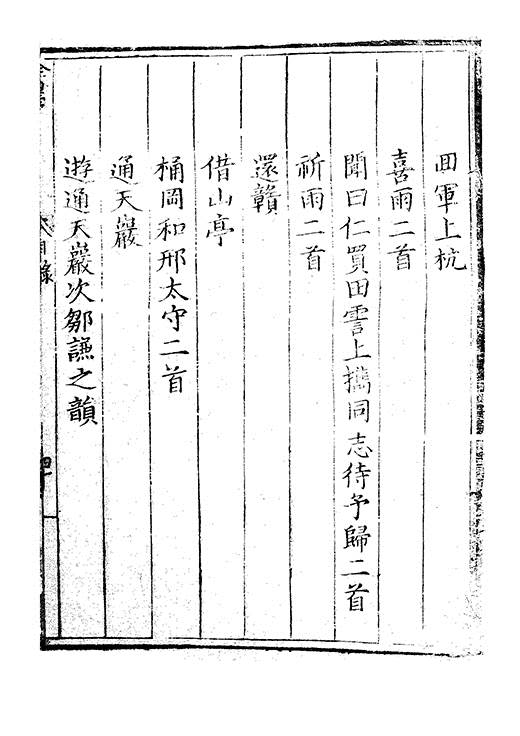 回軍上杭
喜雨二首
聞曰仁買田霅上携同志待予歸二首
祈雨二首
還贛
借山亭
桶岡和邢太守二首
通天巖
遊通天巖次鄒謙之韻
目錄